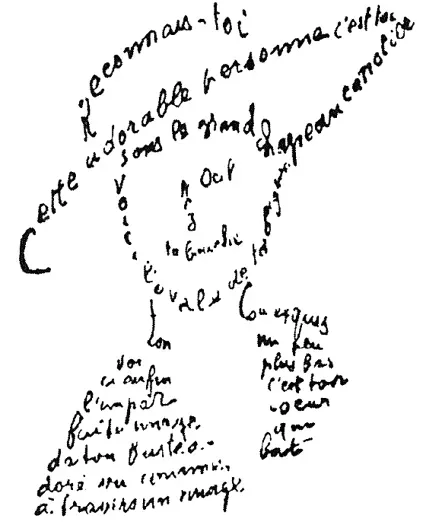 Reconnais-toi
Cette adorable personne c'est toi
Sous le grand chapeau canotier
Oeil
Nez
ta bouche
Voici l'ovale de ta figure
Ton
cou
Voi
ci enfin
l'impar
faite image
de ton buste a
doré vu comme
à travers un nuage
Un peu
plus bas
c'est ton
coeur
qui
bat